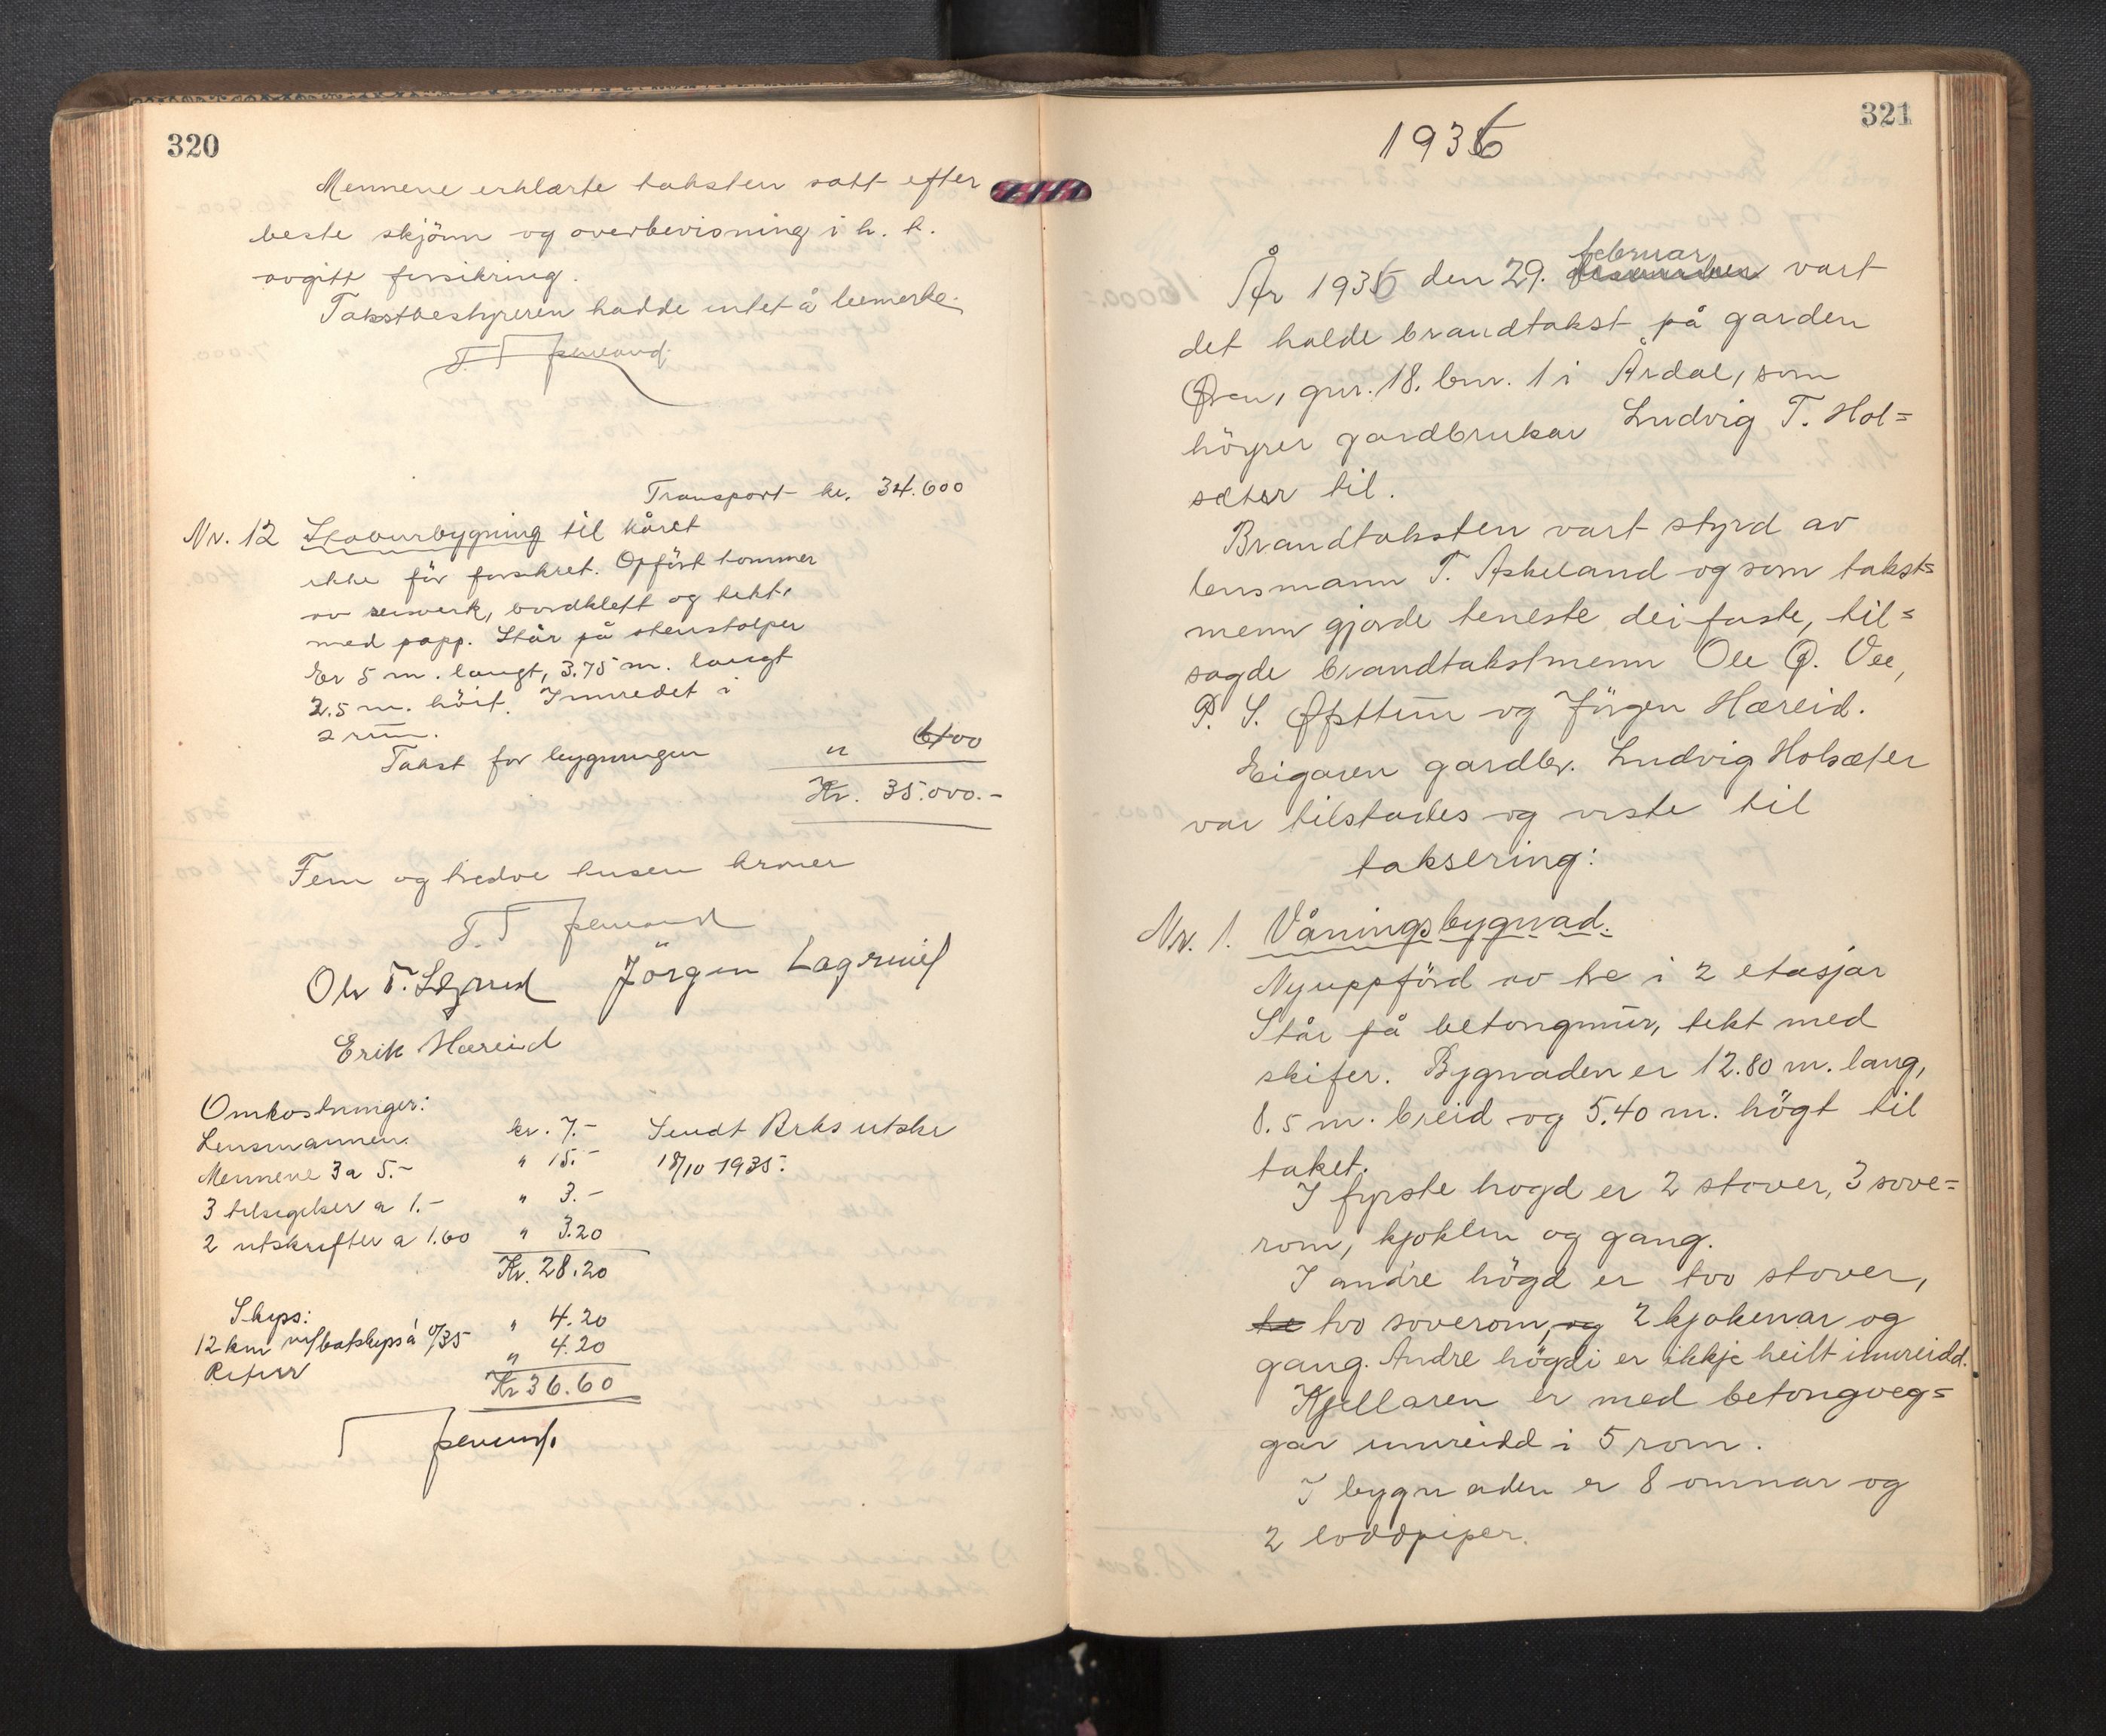 320
Mennene erklærte taksten satt efter
beste skjönn og overbevisning i h. t.
avgitt forsikring.
Takstbestyreren hadde intet å bemerke.
Transport kr. 34.600
Nr. 12 Stabursbygning til kåret
ikke för forsikret. Opfört tommer
av reisverk, bordklett og tekt
med papp. Står på stenstolper
Er 5 m. langt, 3.75 m. langt
2.5 m. höit. Innredet i
2 rum.
Takst for bygningen " 400
Kr. 35.000.-
Fem og tredve tusen kroner
Jörgen
Erik Hæreid
Omkostninger:
Lensmannen kr. 7.- Sendt Brks utskr
Mennene 3 a 5.- " 15.- 18/10 1935.
3 tilsigelser a 1.- " 3.-
2 utskrifter a 1.60 " 3.20
Kr. 28.20
Skyss: " 4.20
12 km m/båtskyss á 0/35 " 4.20
Retur
Kr 36.60
321
1936
År 1936 den 29. februar vart
det halde brandtakst på garden
Øren, gnr. 18. bnr. 1 i Årdal, som
höyrer gardbrukar Ludvig T. Hol=
sæter til.
Brandtaksten vart styrd av
lensmann T. Askeland og som takst=
menn gjorde teneste dei faste, til=
sagde brandtakstmenn Ole Ø. Vee,
P. S. Øfsttun og Jörgen Hæreid.
Eigaren gardbr. Ludvig Holsæter
var tilstades og viste til
taksering:
Nr. 1. Våningsbygnad.
Nyuppförd av tre i 2 etasjar
Står på betongmur, tekt med
skifer. Bygnaden er 12.80 m. lang,
8.5 m. breid og 5.40 m. högt til
taket.
I fyrste hogd er 2 stover, 3 sove=
rom, kjøkken og gang.
I andre högd er tvo stover,
tre tvo soverom, og 2 kjøkenar og
gang. Andre högdi er ikkje heilt innreidd.
Kjellaren er med betongveg=
gar innreidd i 5 rom.
I bygnaden er 8 omnar og
2 loddpiper.